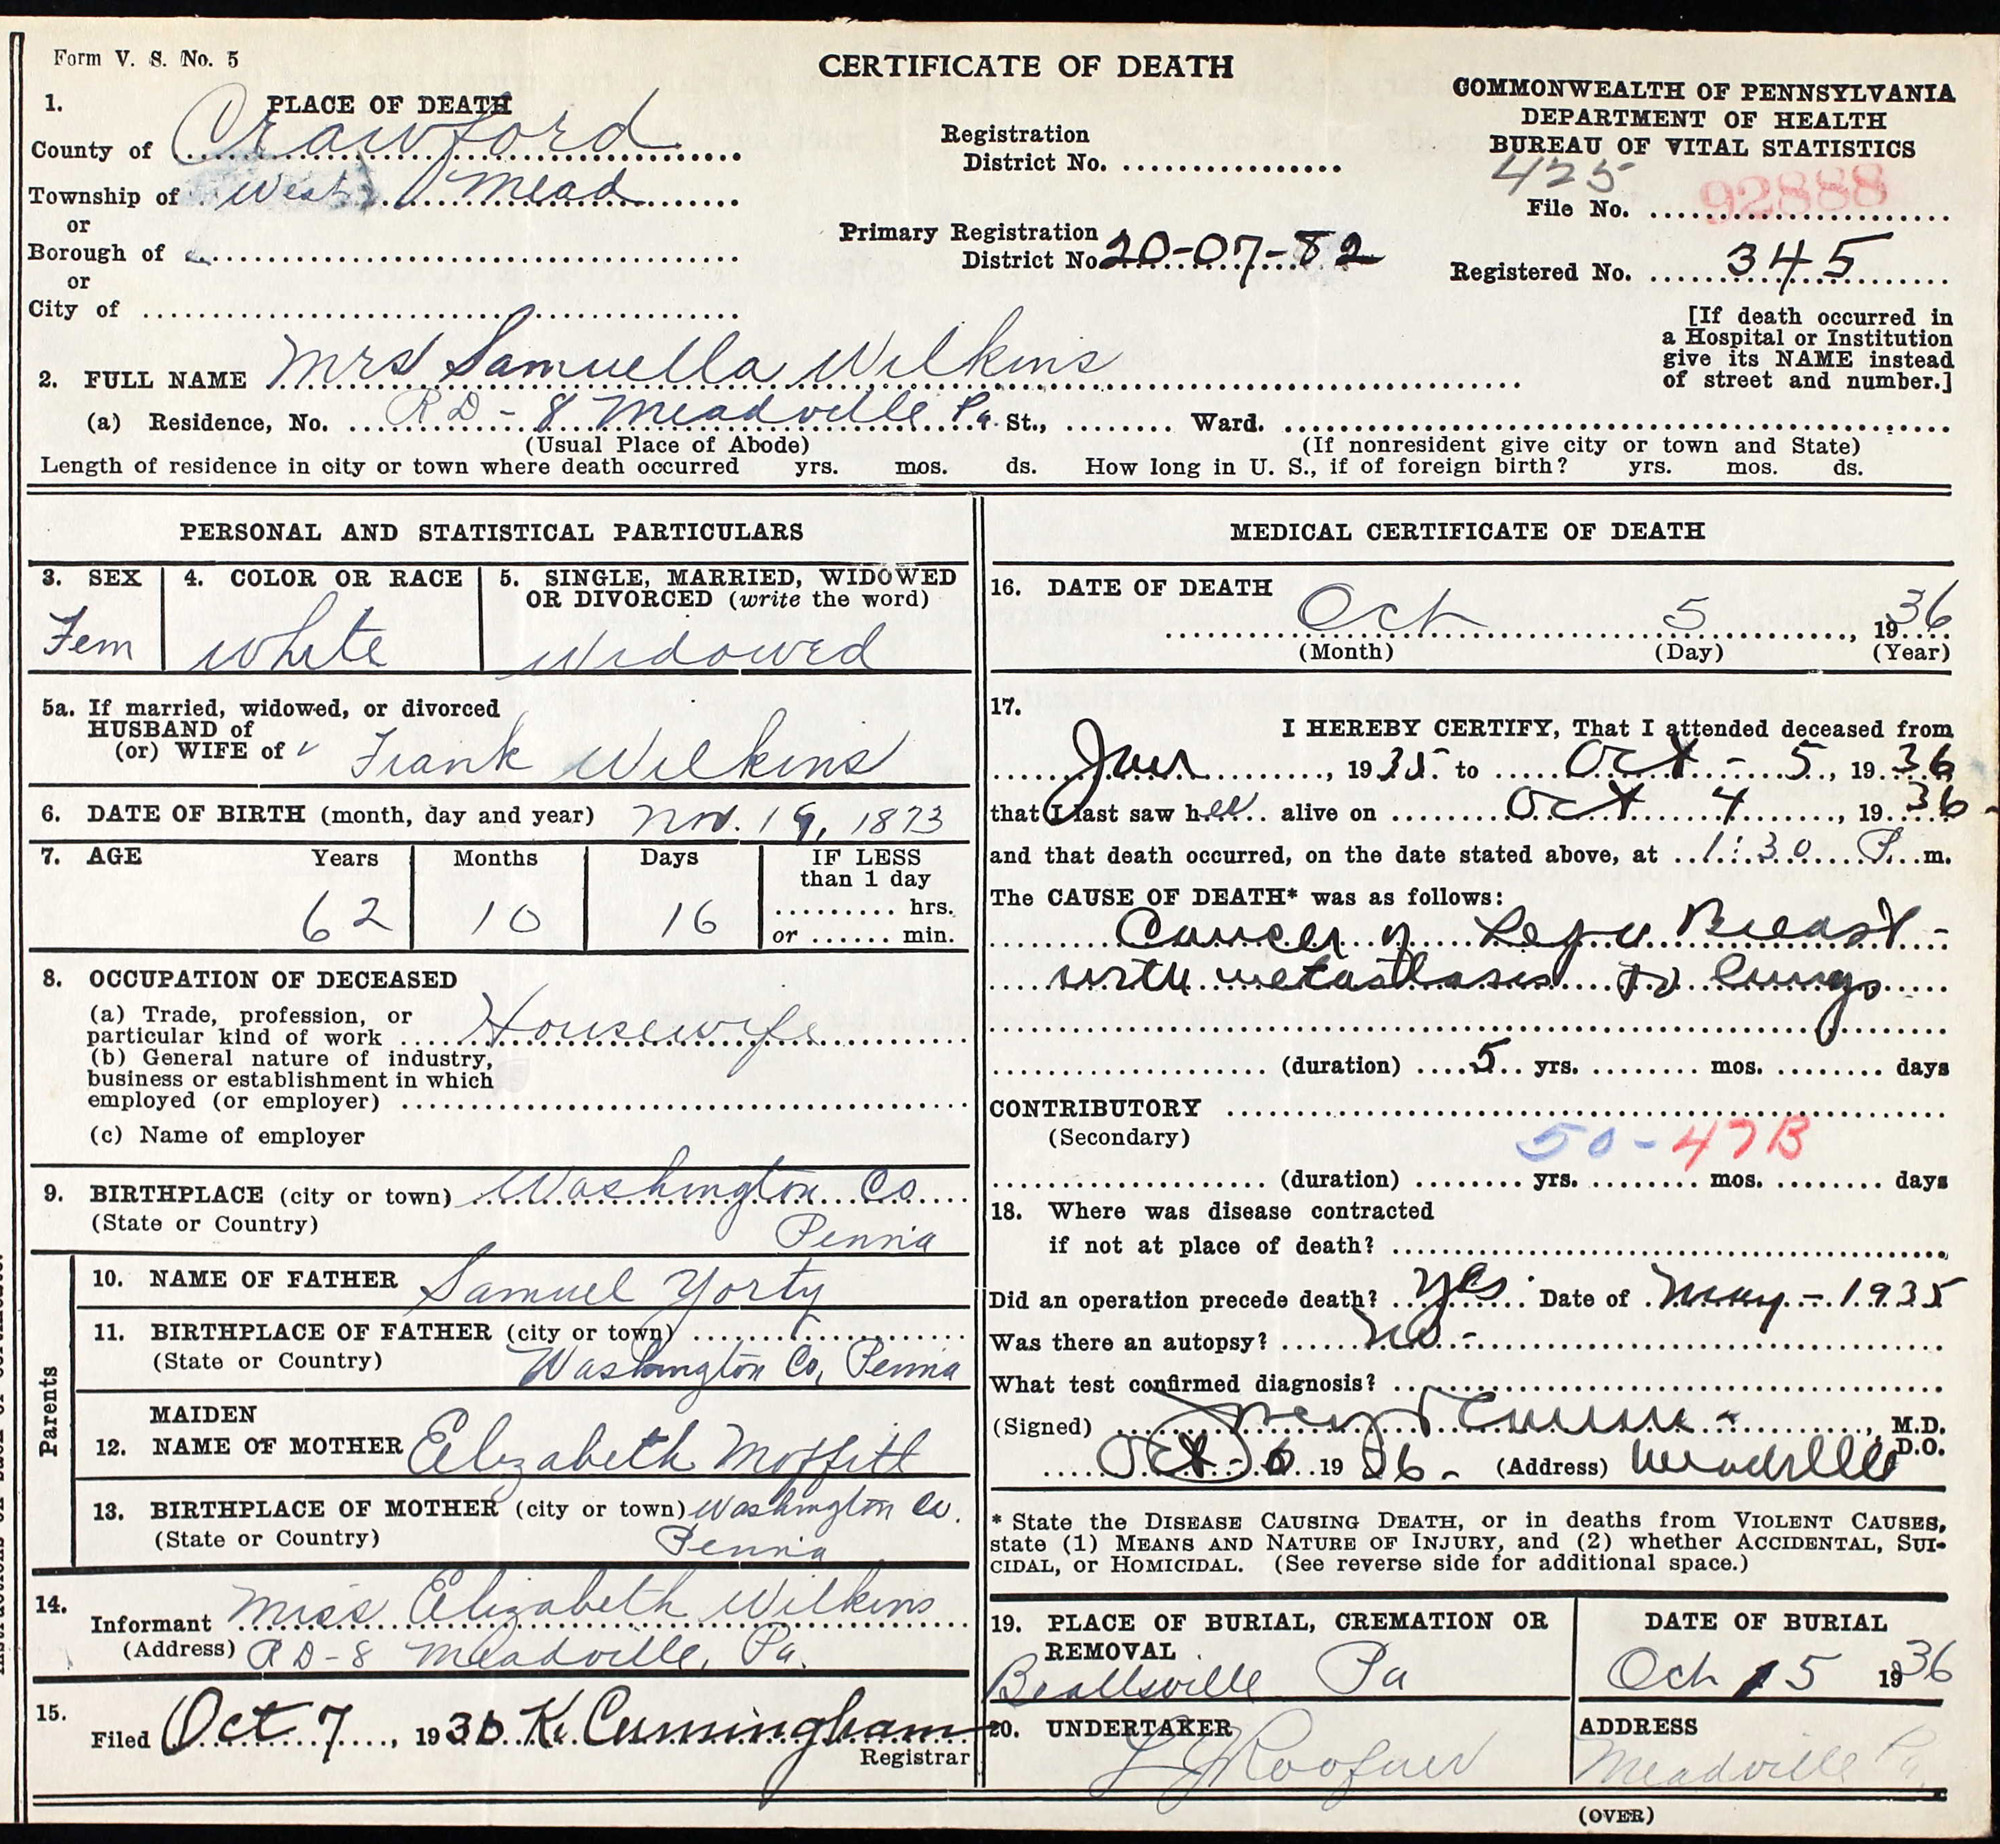 Form V. S. No. 5
CERTIFICATE OF DEATH
COMMONWEALTH OF PENNSYLVANIA
DEPARTMENT OF HEALTH
BUREAU OF VITAL STATISTICS
1. PLACE OF DEATH
County of Crawford
Township of West Mead
or
Borough of
or
City of
Registration
District No.
Primary Registration
District No. 20-07-82
425
92888
File No.
Registered No. 345
[If death occurred in
a Hospital or Institution
give its NAME instead
of street and number.]
2. FULL NAME Mrs Samuella Wilkins
(a) Residence, No. RD-8 Meadville Pa. St., Ward.
(Usual Place of Abode) (If nonresident give city or town and State)
Length of residence in city or town where death occurred yrs. mos. ds. How long in U. S., if of foreign birth? yrs. mos. ds.
PERSONAL AND STATISTICAL PARTICULARS
3. SEX
Fem
4. COLOR OR RACE
White
5. SINGLE, MARRIED, WIDOWED
OR DIVORCED (write the word)
Widowed
5a. If married, widowed, or divorced
HUSBAND of
(or) WIFE of Frank Wilkins
6. DATE OF BIRTH (month, day and year) Nov. 19, 1873
7. AGE Years Months Days IF LESS
than 1 day
62 10 16 hrs.
or min.
8. OCCUPATION OF DECEASED
(a) Trade, profession, or
particular kind of work Housewife
(b) General nature of industry,
business or establishment in which
employed (or employer)
(c) Name of employer
9. BIRTHPLACE (city or town) Washington Co
(State or Country) Penna
Parents
10. NAME OF FATHER Samuel Yorty
11. BIRTHPLACE OF FATHER (city or town)
(State or Country) Washington Co, Penna
MAIDEN
12. NAME OF MOTHER Elizabeth Moffitt
13. BIRTHPLACE OF MOTHER (city or town) Washington Co.
(State or Country) Penna
14.
Informant Miss Elizabeth Wilkins
(Address) RD-8 Meadville, Pa.
15.
Filed Oct 7, 1936 K. Cunningham
Registrar
MEDICAL CERTIFICATE OF DEATH
16. DATE OF DEATH
Oct 5, 1936
(Month) (Day) (Year)
17.
I HEREBY CERTIFY, That I attended deceased from
Jan, 1935 to Oct - 5, 1936
that I last saw her alive on Oct 4, 1936-
and that death occurred, on the date stated above, at 1:30 P. m.
The CAUSE OF DEATH* was as follows:
Cancer of Breast-
with metasthasis to lungs
(duration) 5 yrs. mos. days
CONTRIBUTORY
(Secondary)
50-47B
(duration) yrs. mos. days
18. Where was disease contracted
if not at place of death?
Did an operation precede death? Yes. Date of May-1935
Was there an autopsy? No-
What test confirmed diagnosis?
(Signed) M.D.
D.O.
Oct-6 1936- (Address) Meadville
* State the DISEASE CAUSING DEATH, or in deaths from VIOLENT CAUSES,
state (1) MEANS AND NATURE OF INJURY, and (2) whether ACCIDENTAL, SUI-
CIDAL, or HOMICIDAL. (See reverse side for additional space.)
19. PLACE OF BURIAL, CREMATION OR
REMOVAL
Beallsville Pa
DATE OF BURIAL
Oct 5 1936
20. UNDERTAKER
ADDRESS
Meadville Pa.
(OVER)